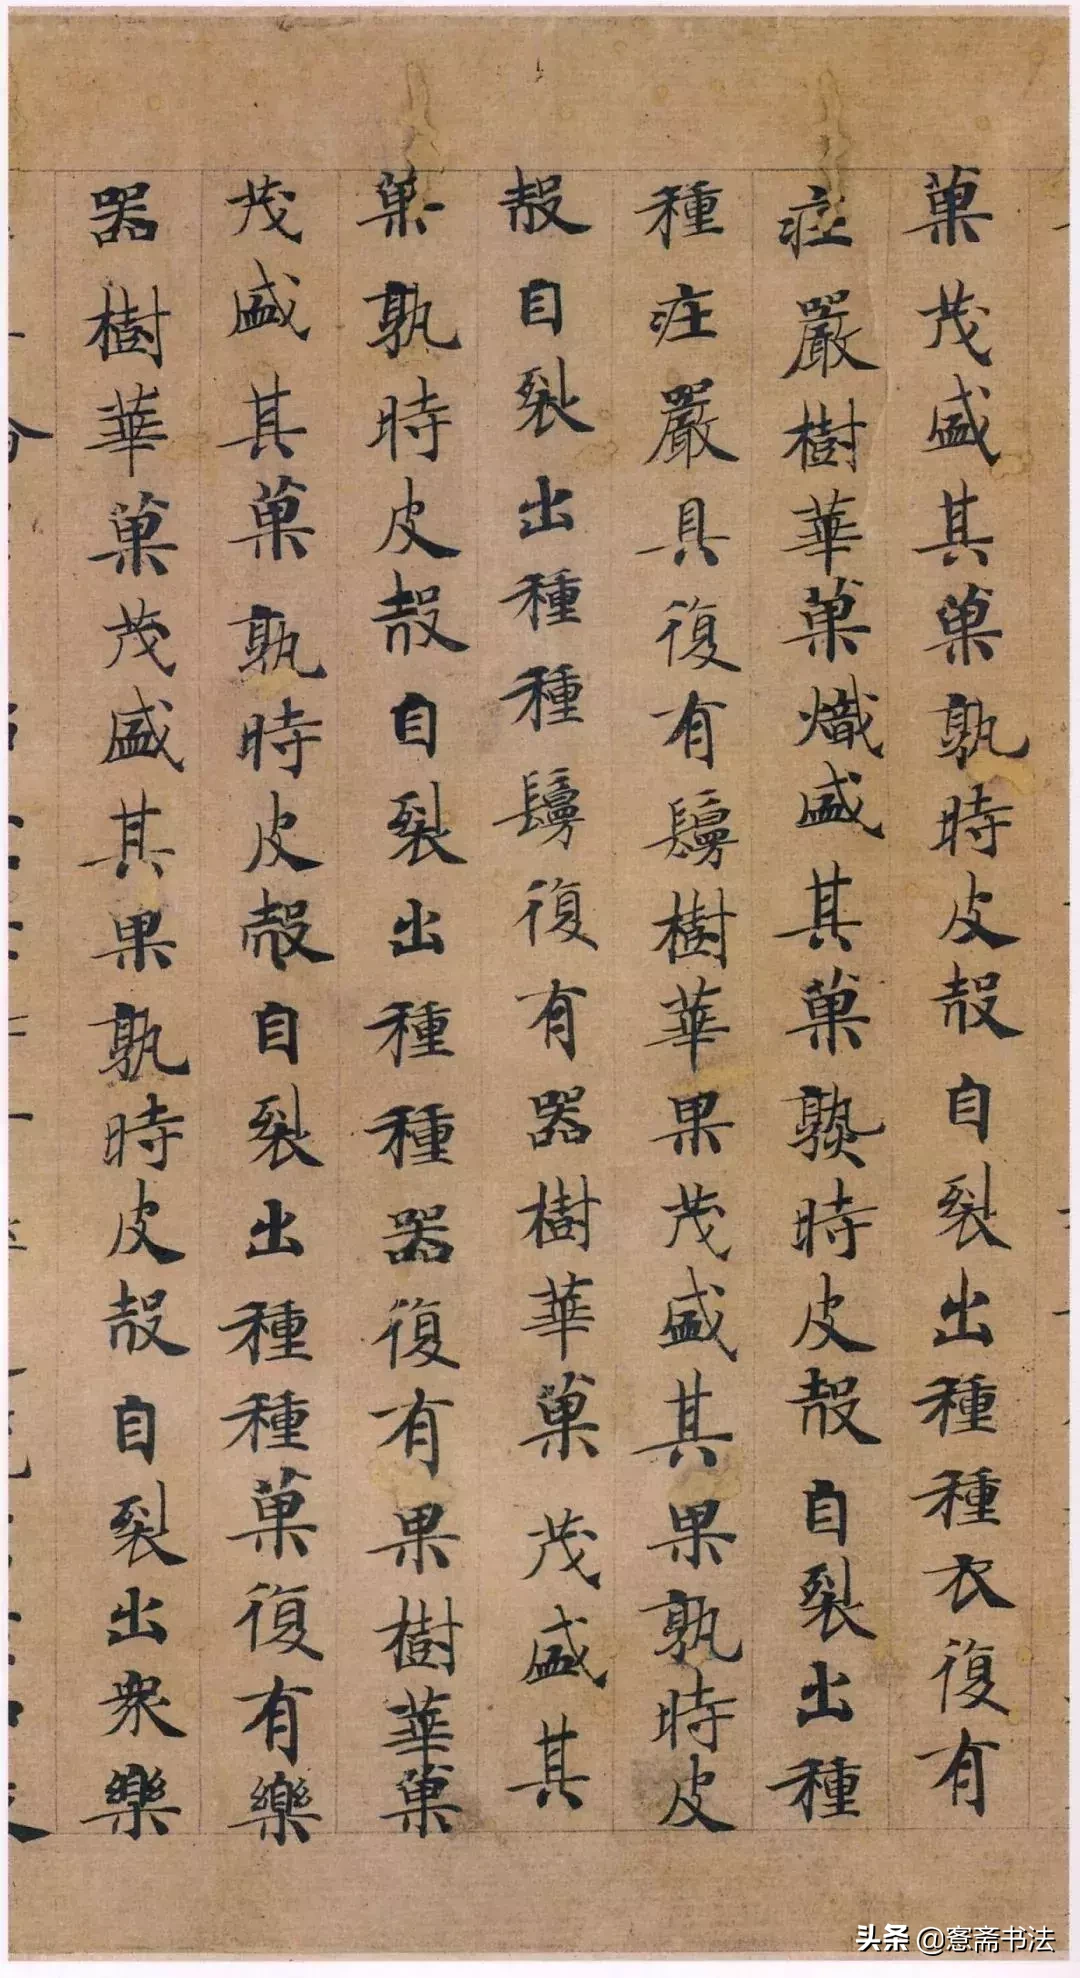 菓茂盛其菓孰時皮殻自裂出種種衣復有
庄嚴樹華菓熾盛其菓熟時皮殻自裂出種
種庄嚴具復有鬘樹華果茂盛其果孰時皮
殻自裂出種種鬘復有器樹華菓茂盛其
菓孰時皮殻自裂出種種器復有果樹華菓
茂盛其菓孰時皮殻自裂出種種菓復有樂
器樹華菓茂盛其果孰時皮殻自裂出衆樂
头条 @窓斋书法